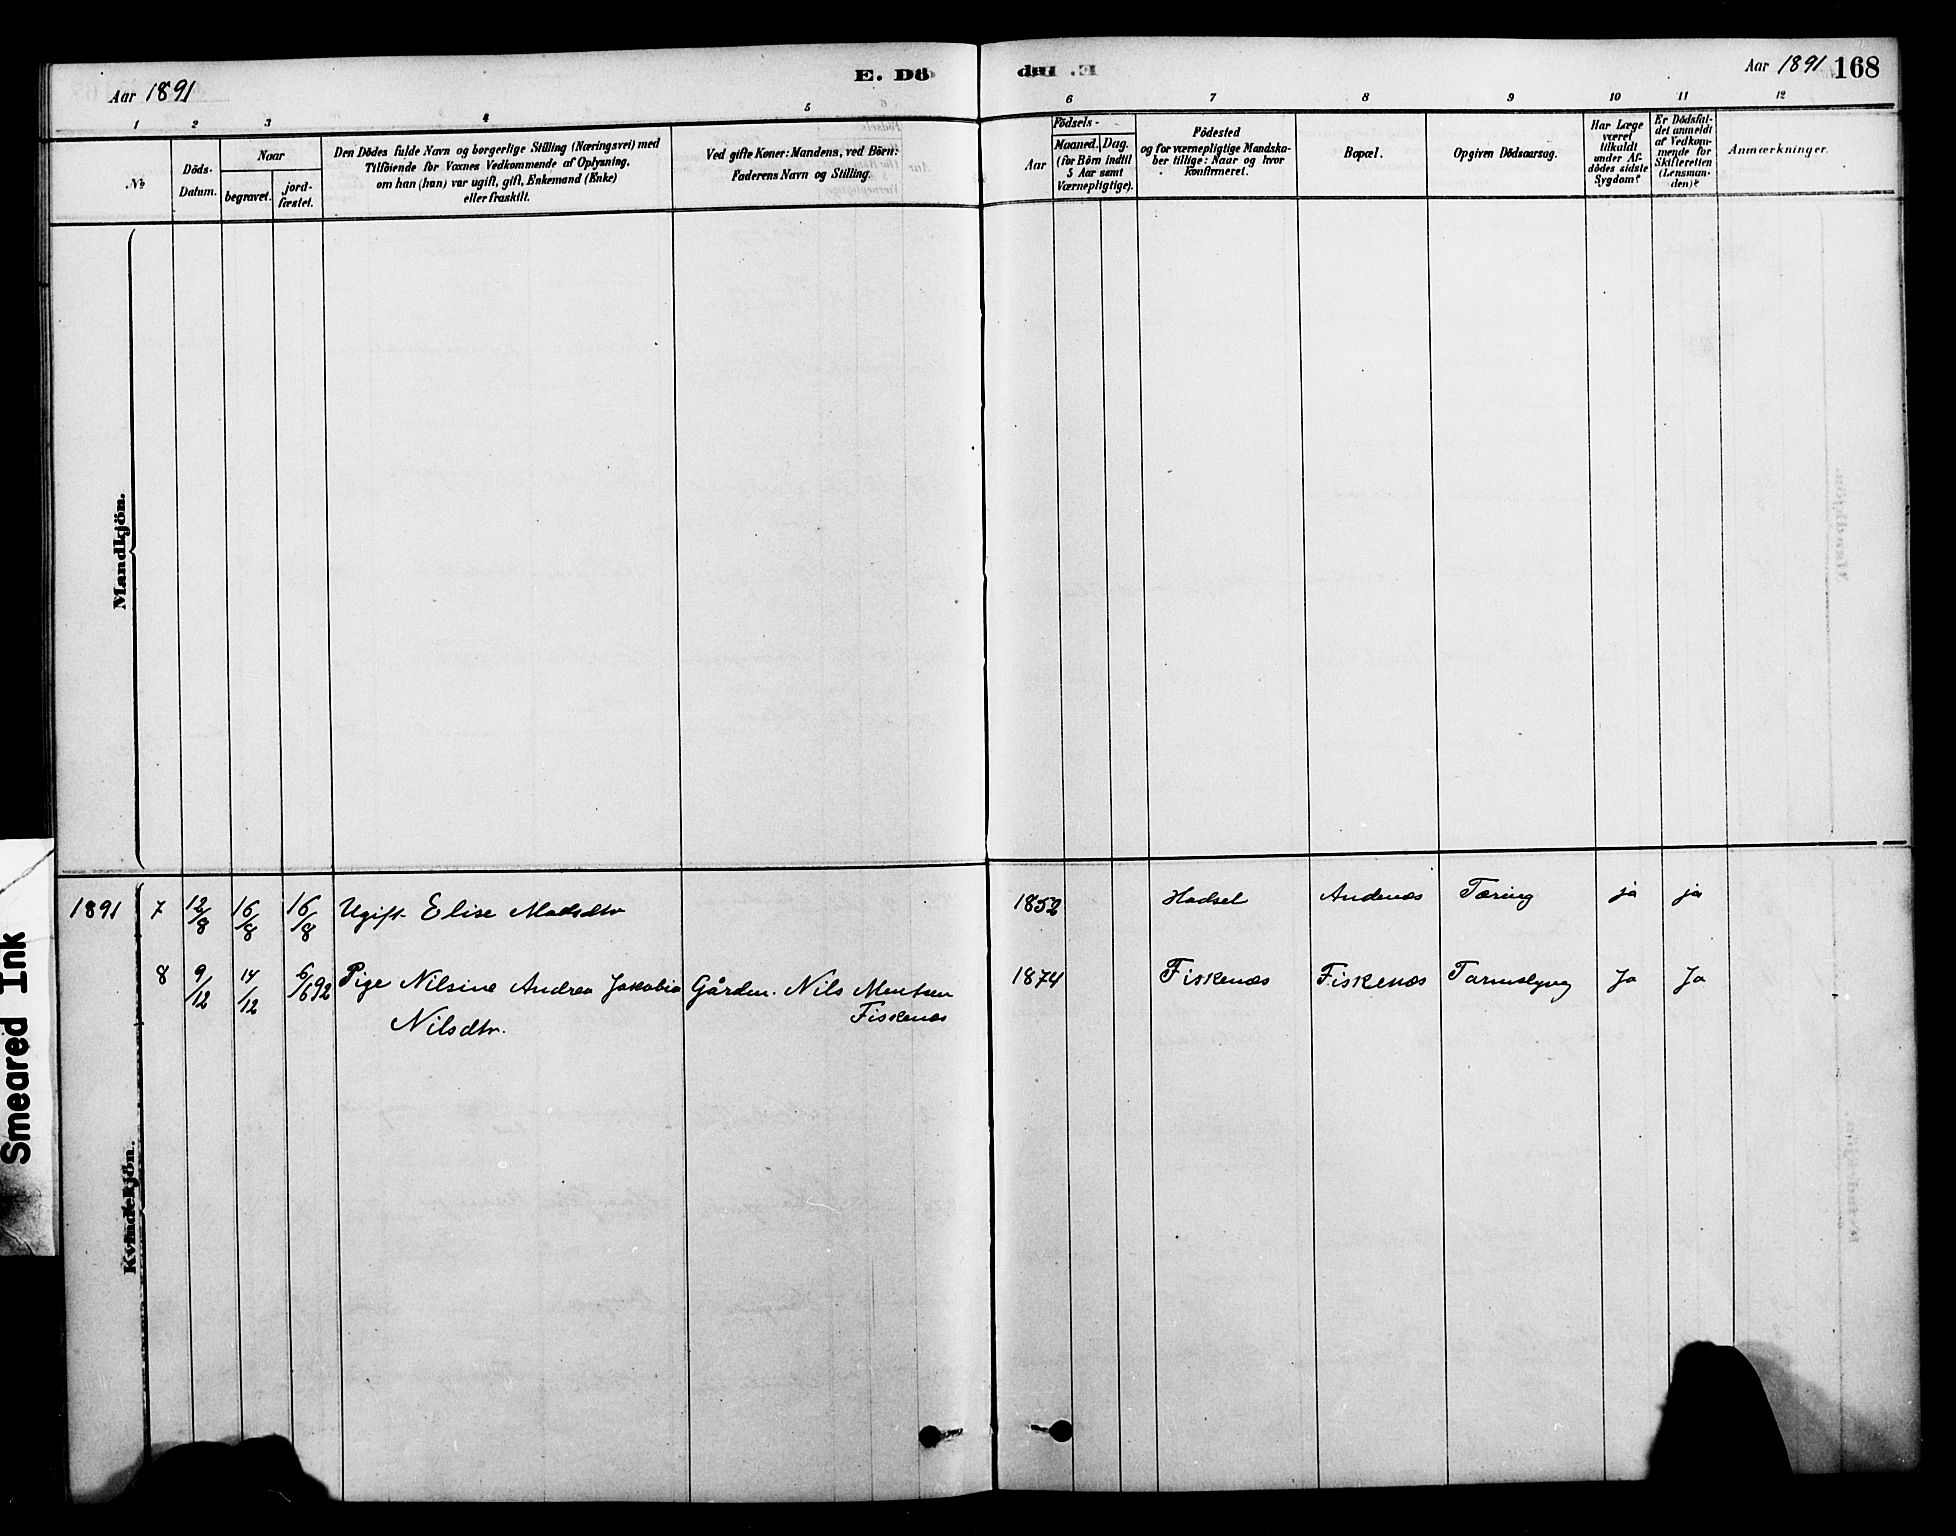 Aar 1891
E. Dö
Aar 1891 168
1 2 3 4 5 6 7 8 9 10 11 12
No
Döds-
Datum.
Naar
begravet.
jord-
fæstet.
Den Dödes fulde Navn og borgerlige Stilling (Næringsvei) med
Tilföiende for Voxnes Vedkommende af Oplysning,
om han (hun) var ugift, gift, Enkemand (Enke)
eller fraskilt.
Ved gifte Koner: Mandens, ved Börn:
Faderens Navn og Stilling.
Födsels-
Aar
Maaned. Dag.
(for Börn indtil
5 Aar samt
Værnepligtige).
Födested
og for værnepligtige Mandska-
ber tillige: Naar og hvor
konfirmeret.
Bopæl.
Opgiven Dödsaarsag.
Har Læge
været
tilkaldt
under Af-
dödes sidste
Sygdom?
Er Dödsfal-
det anmeldt
af Vedkom-
mende for
Skifteretten
(Lensman-
den)?
Anmærkninger.
Mandkjön.
1891 7 12/8 16/8 16/8 Ugift Elise Madsdtr 1852 Hadsel Andenæs Tæring ja ja
8 9/12 14/12 6/6 92 Pige Nilsine Andrea Jakobia Gårdm. Nils Mentsen 1874 Fiskenæs Fiskenæs Tarmslyng Ja Ja
Nilsdtr. Fiskenæs
Kvindekjön.
Smeared Ink